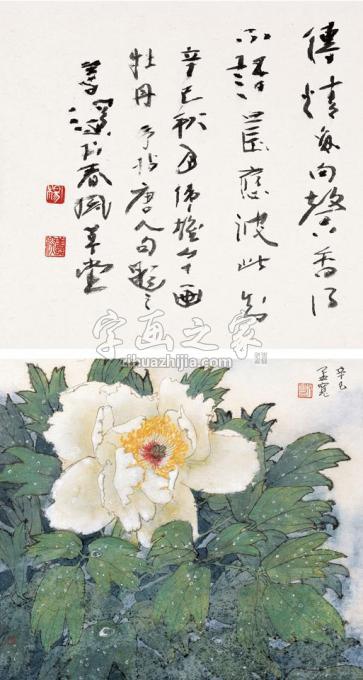 傳情每向馨香得
不語還應彼此知
辛巳秋月
牡丹予拈唐人句題之
於春風草堂
字画之家
zihuazhijia.com
辛巳